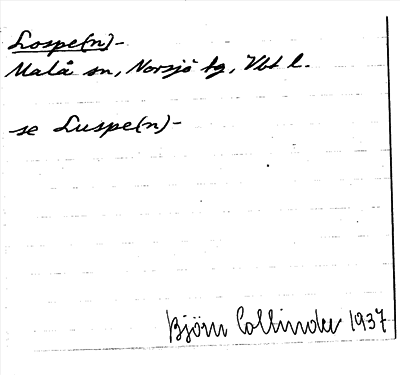 Lospe(n)-
Malå sn, Norsjö tg, Vbt l.
se Luspe(n)-
Björn Collinder 1937